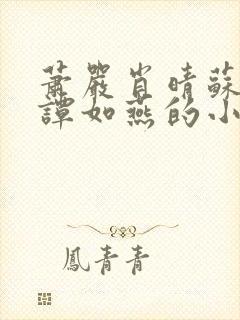 蕭嚴肖晴蘇
譚如燕的小
鳳青青